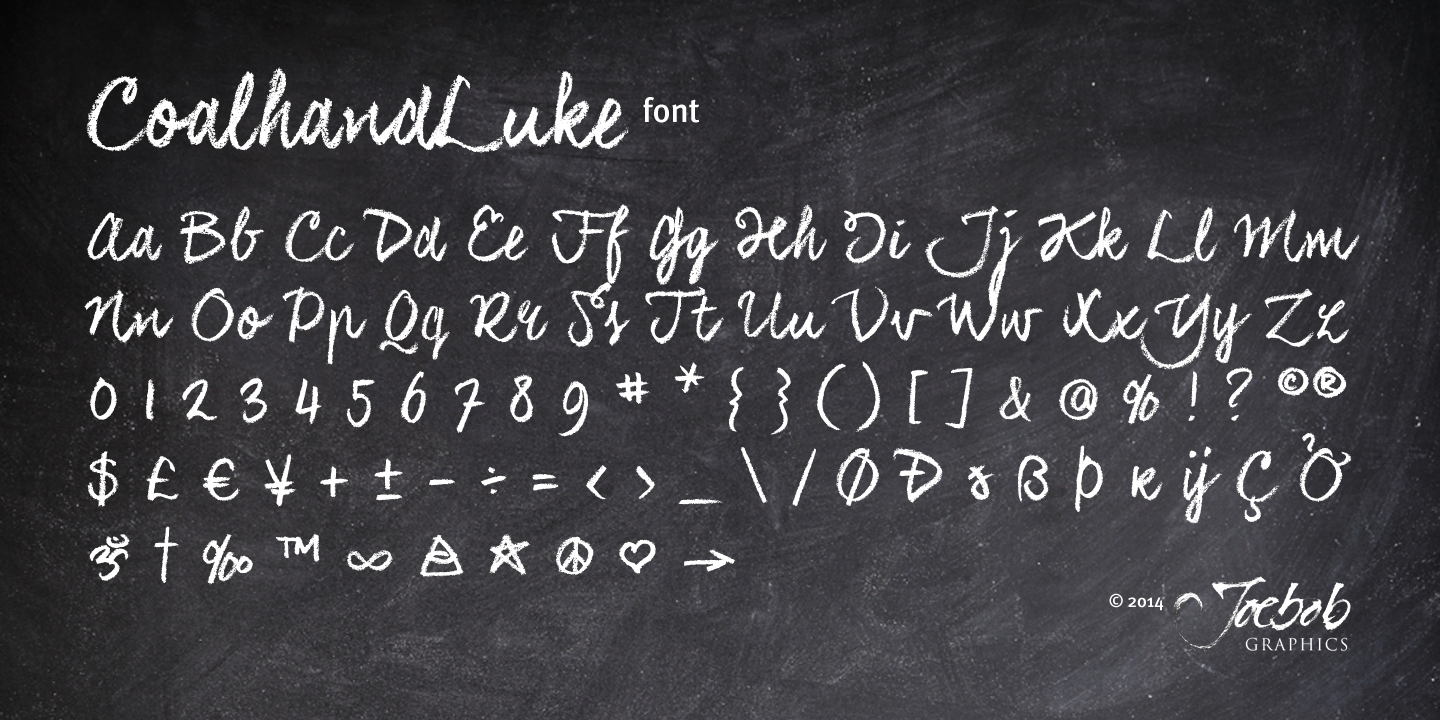 CoalhandLuke font
Aa Bb Cc Dd Ee Ff Gg Hh Ii Jj Kk Ll Mm
Nn Oo Pp Qq Rr Ss Tt Uu Vv Ww Xx Yy Zz
0 1 2 3 4 5 6 7 8 9 # * { } ( ) [ ] & @ % ! ? © ®
$ £ € ¥ + ± − ÷ = < > _ \ / Ø Đ ɟ ß þ ĸ ÿ Ç Ỏ
ॐ † ‰ ™ ∞ ★ ☮ ♡ →
© 2014 Joebob
GRAPHICS